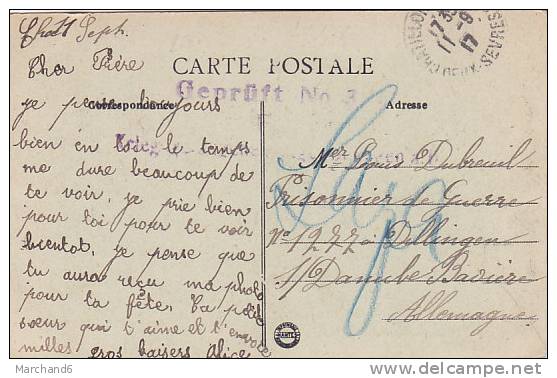 Chat Sept.
Cher Frère
CARTE POSTALE
Geprüft No 3
Correspondance
Adresse
je pense toujours
bien en toi le temps
me dure beaucoup de
te voir, je prie bien
pour toi pour te voir
bientot, je pense que
tu aura reçu ma photo
pour ta fête. Ta petite
sœur qui t'aime et t'envoie
milles gros baisers Alice
Mer Louis Dubreuil
Prisonnier de Guerre
No 1277 à Dillingen
s/ Danube Bavière
Allemagne
17 35
11 -9
17
DEUX-SEVRES
Marchand6
delcampe.net